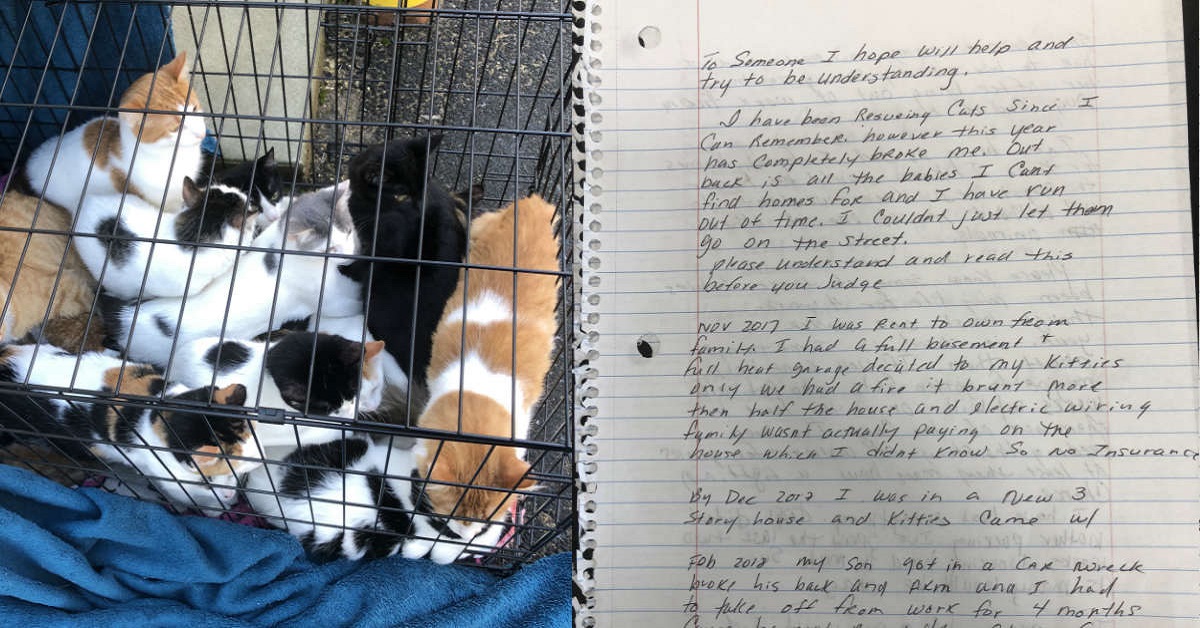 To Someone I hope will help and
try to be understanding.
I have been Resueing Cats Since I
Can Remember. however this year
has Completely broke me. Out
back is all the babies I Cant
find homes for and I have run
out of time. I Couldnt just let them
go on the street.
please understand and read this
before you Judge
Nov 2017 I was Rent to own from
family. I had a full basement +
full heat garage decated to my Kitties
only we had a fire it brunt more
then half the house and electric wiring
family wasnt actually paying on the
house which I didnt know So no Insuranc
By Dec 2017 I was in a New 3
Story house and Kitties Came w/
Feb 2018 my Son got in a CAR wreck
broke his back and ARM and I had
to take off from work for 4 months